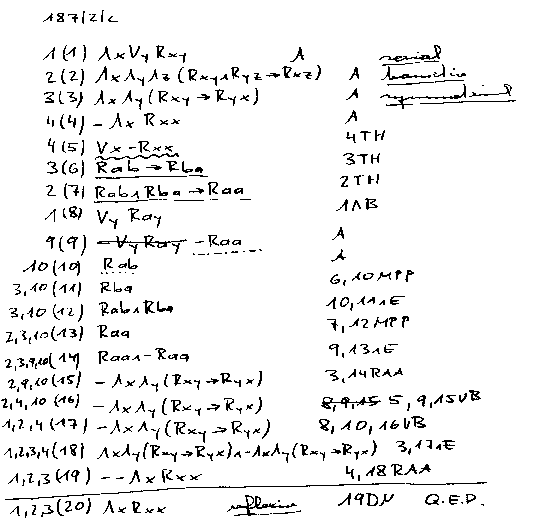 187/2/c
1 (1) ΛxVyRxy A serial
2 (2) ΛxΛyΛz(Rxy∧Ryz→Rxz) A transitive
3 (3) ΛxΛy(Rxy→Ryx) A symmetrical
4 (4) -ΛxRxx A
4 (5) Vx-Rxx 4TH
3 (6) Rab→Rba 3TH
2 (7) Rab∧Rba→Raa 2TH
1 (8) VyRay 1ΛB
9 (9) -VyRay -Raa A
10 (10) Rab A
3,10 (11) Rba 6,10MPP
3,10 (12) Rab∧Rba 10,11∧E
2,3,10 (13) Raa 7,12MPP
2,3,9,10 (14) Raa∧-Raa 9,13∧E
2,9,10 (15) -ΛxΛy(Rxy→Ryx) 3,14RAA
2,4,10 (16) -ΛxΛy(Rxy→Ryx) 8,9,15 5,9,15VB
1,2,4 (17) -ΛxΛy(Rxy→Ryx) 8,10,16VB
1,2,3,4 (18) ΛxΛy(Rxy→Ryx)∧-ΛxΛy(Rxy→Ryx) 3,17∧E
1,2,3 (19) --ΛxRxx 4,18RAA
1,2,3 (20) ΛxRxx reflexive 19DN Q.E.D.